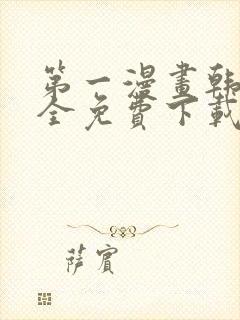 第一漫畫韓
全免費下載
薩賓